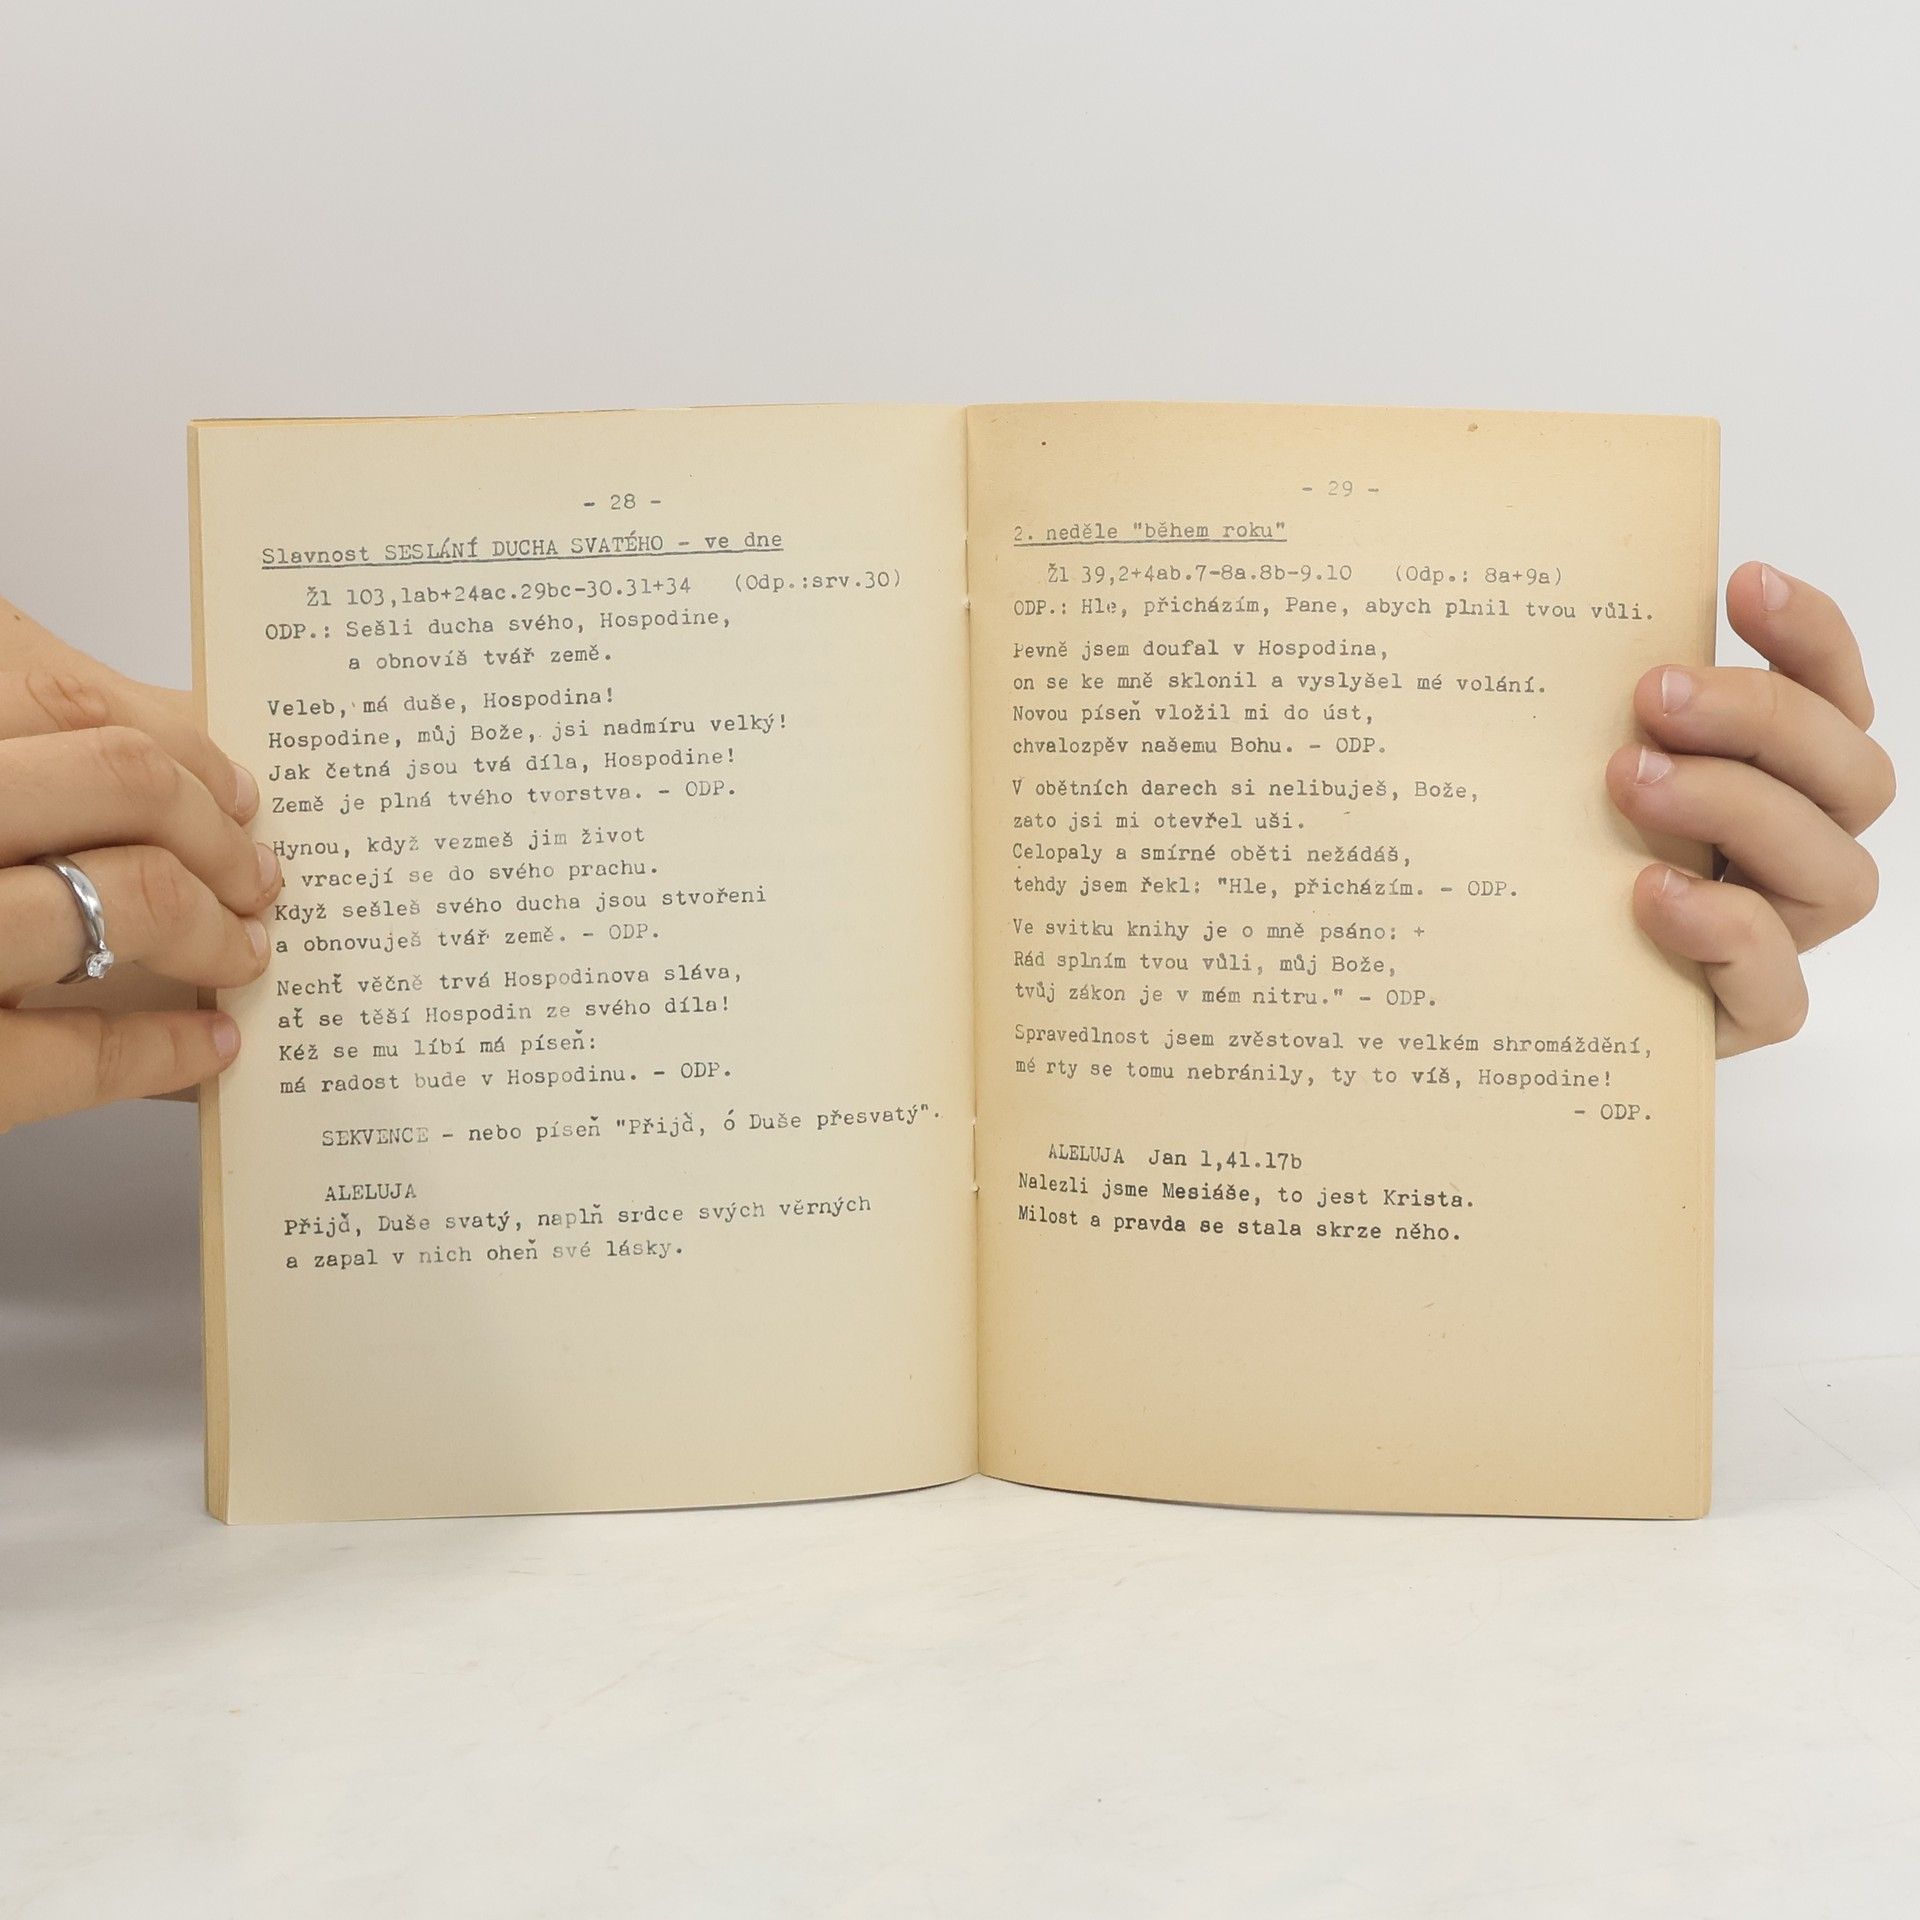 - 28 -
Slavnost SESLÁNÍ DUCHA SVATÉHO - ve dne
Žl 103,1ab+24ac.29bc-30.31+34 (Odp.:srv.30)
ODP.: Sešli ducha svého, Hospodine,
a obnovíš tvář země.
Veleb, má duše, Hospodina!
Hospodine, můj Bože, jsi nadmíru velký!
Jak četná jsou tvá díla, Hospodine!
Země je plná tvého tvorstva. - ODP.
Hynou, když vezmeš jim život
vracejí se do svého prachu.
Když sešleš svého ducha jsou stvořeni
a obnovuješ tvář země. - ODP.
Nechť věčně trvá Hospodinova sláva,
ať se těší Hospodin ze svého díla!
Kéž se mu líbí má píseň:
má radost bude v Hospodinu. - ODP.
SEKVENCE - nebo píseň "Přijď, ó Duše přesvatý".
ALELUJA
Přijď, Duše svatý, naplň srdce svých věrných
a zapal v nich oheň své lásky.
- 29 -
2. neděle "během roku"
Žl 39,2+4ab.7-8a.8b-9.10 (Odp.: 8a+9a)
ODP.: Hle, přicházím, Pane, abych plnil tvou vůli.
Pevně jsem doufal v Hospodina,
on se ke mně sklonil a vyslyšel mé volání.
Novou píseň vložil mi do úst,
chvalozpěv našemu Bohu. - ODP.
V obětních darech si nelibuješ, Bože,
zato jsi mi otevřel uši.
Celopaly a smírné oběti nežádáš,
tehdy jsem řekl: "Hle, přicházím. - ODP.
Ve svitku knihy je o mně psáno: +
Rád splním tvou vůli, můj Bože,
tvůj zákon je v mém nitru." - ODP.
Spravedlnost jsem zvěstoval ve velkém shromáždění,
mé rty se tomu nebránily, ty to víš, Hospodine!
- ODP.
ALELUJA Jan 1,41.17b
Nalezli jsme Mesiáše, to jest Krista.
Milost a pravda se stala skrze něho.